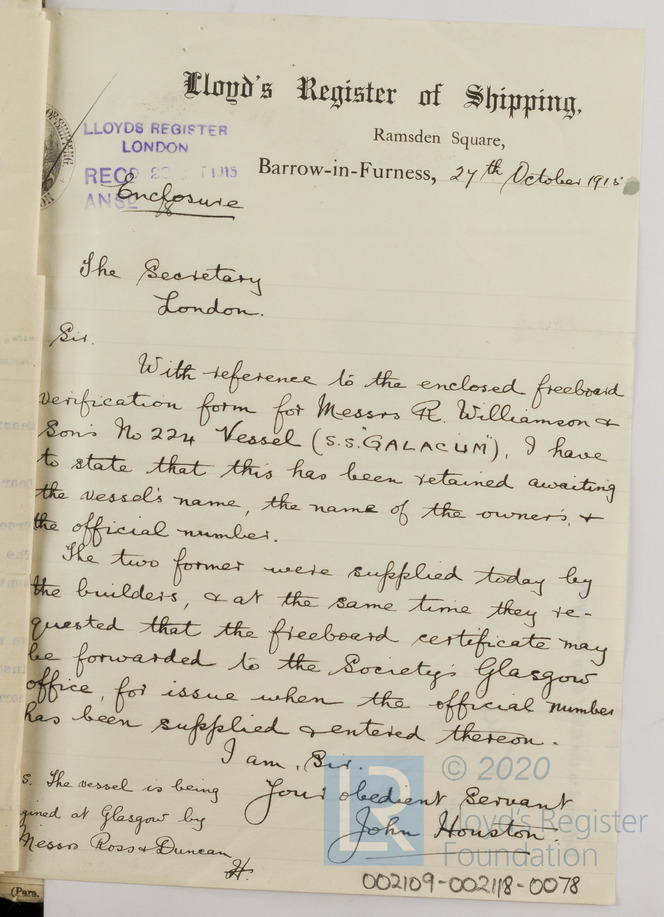 Lloyd's Register of Shipping,
Ramsden Square,
Barrow-in-Furness, 27th October 1915
LLOYDS REGISTER
LONDON
RECD 1915
ANSD
Enclosure
The Secretary
London.
Sir.
With reference to the enclosed freeboard
verification form for Messrs R. Williamson &
Son's No 224 Vessel (S.S. "GALACUM"), I have
to state that this has been retained awaiting
the vessel's name, the name of the owners, &
the official number.
The two former were supplied today by
the builders, & at the same time they re-
quested that the freeboard certificate may
be forwarded to the Society's Glasgow
office, for issue when the official number
has been supplied & entered thereon.
I am, Sir.
Your obedient servant
John Houston.
S. The vessel is being
gined at Glasgow by
Messrs Ross & Duncan
H.
(Para.
© 2020
LR
Lloyd's Register
Foundation
002109-002118-0078